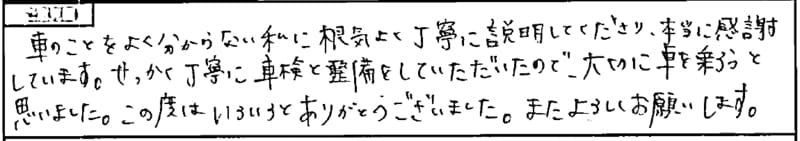 車のことをよく分からない私に根気よく丁寧に説明してくださり、本当に感謝
しています。せっかく丁寧に車検と整備をしていただいたので、大切に車を乗ろうと
思いました。この度はいろいろとありがとうございました。またよろしくお願いします。